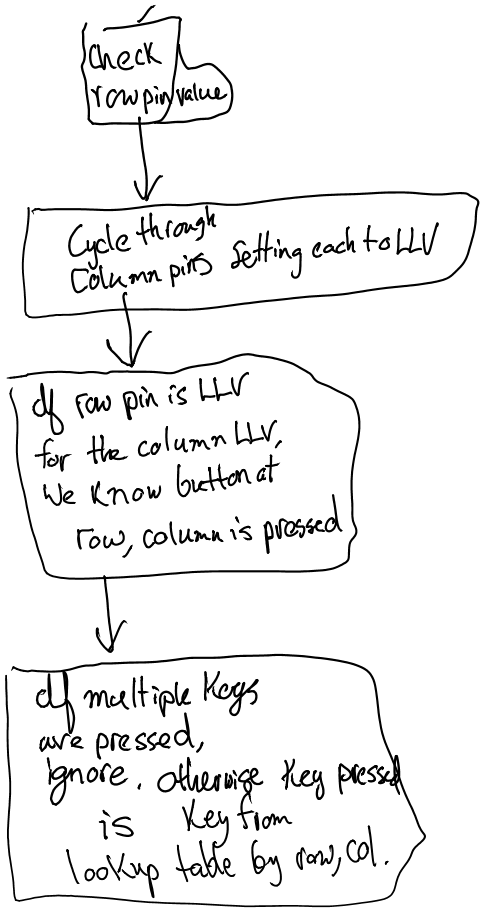 Check
row pin value
Cycle through
Column pins setting each to LLV
If row pin is LLV
for the column LLV,
We know button at
row, column is pressed
If multiple keys
are pressed,
ignore. otherwise key pressed
is key from
lookup table by row, col.